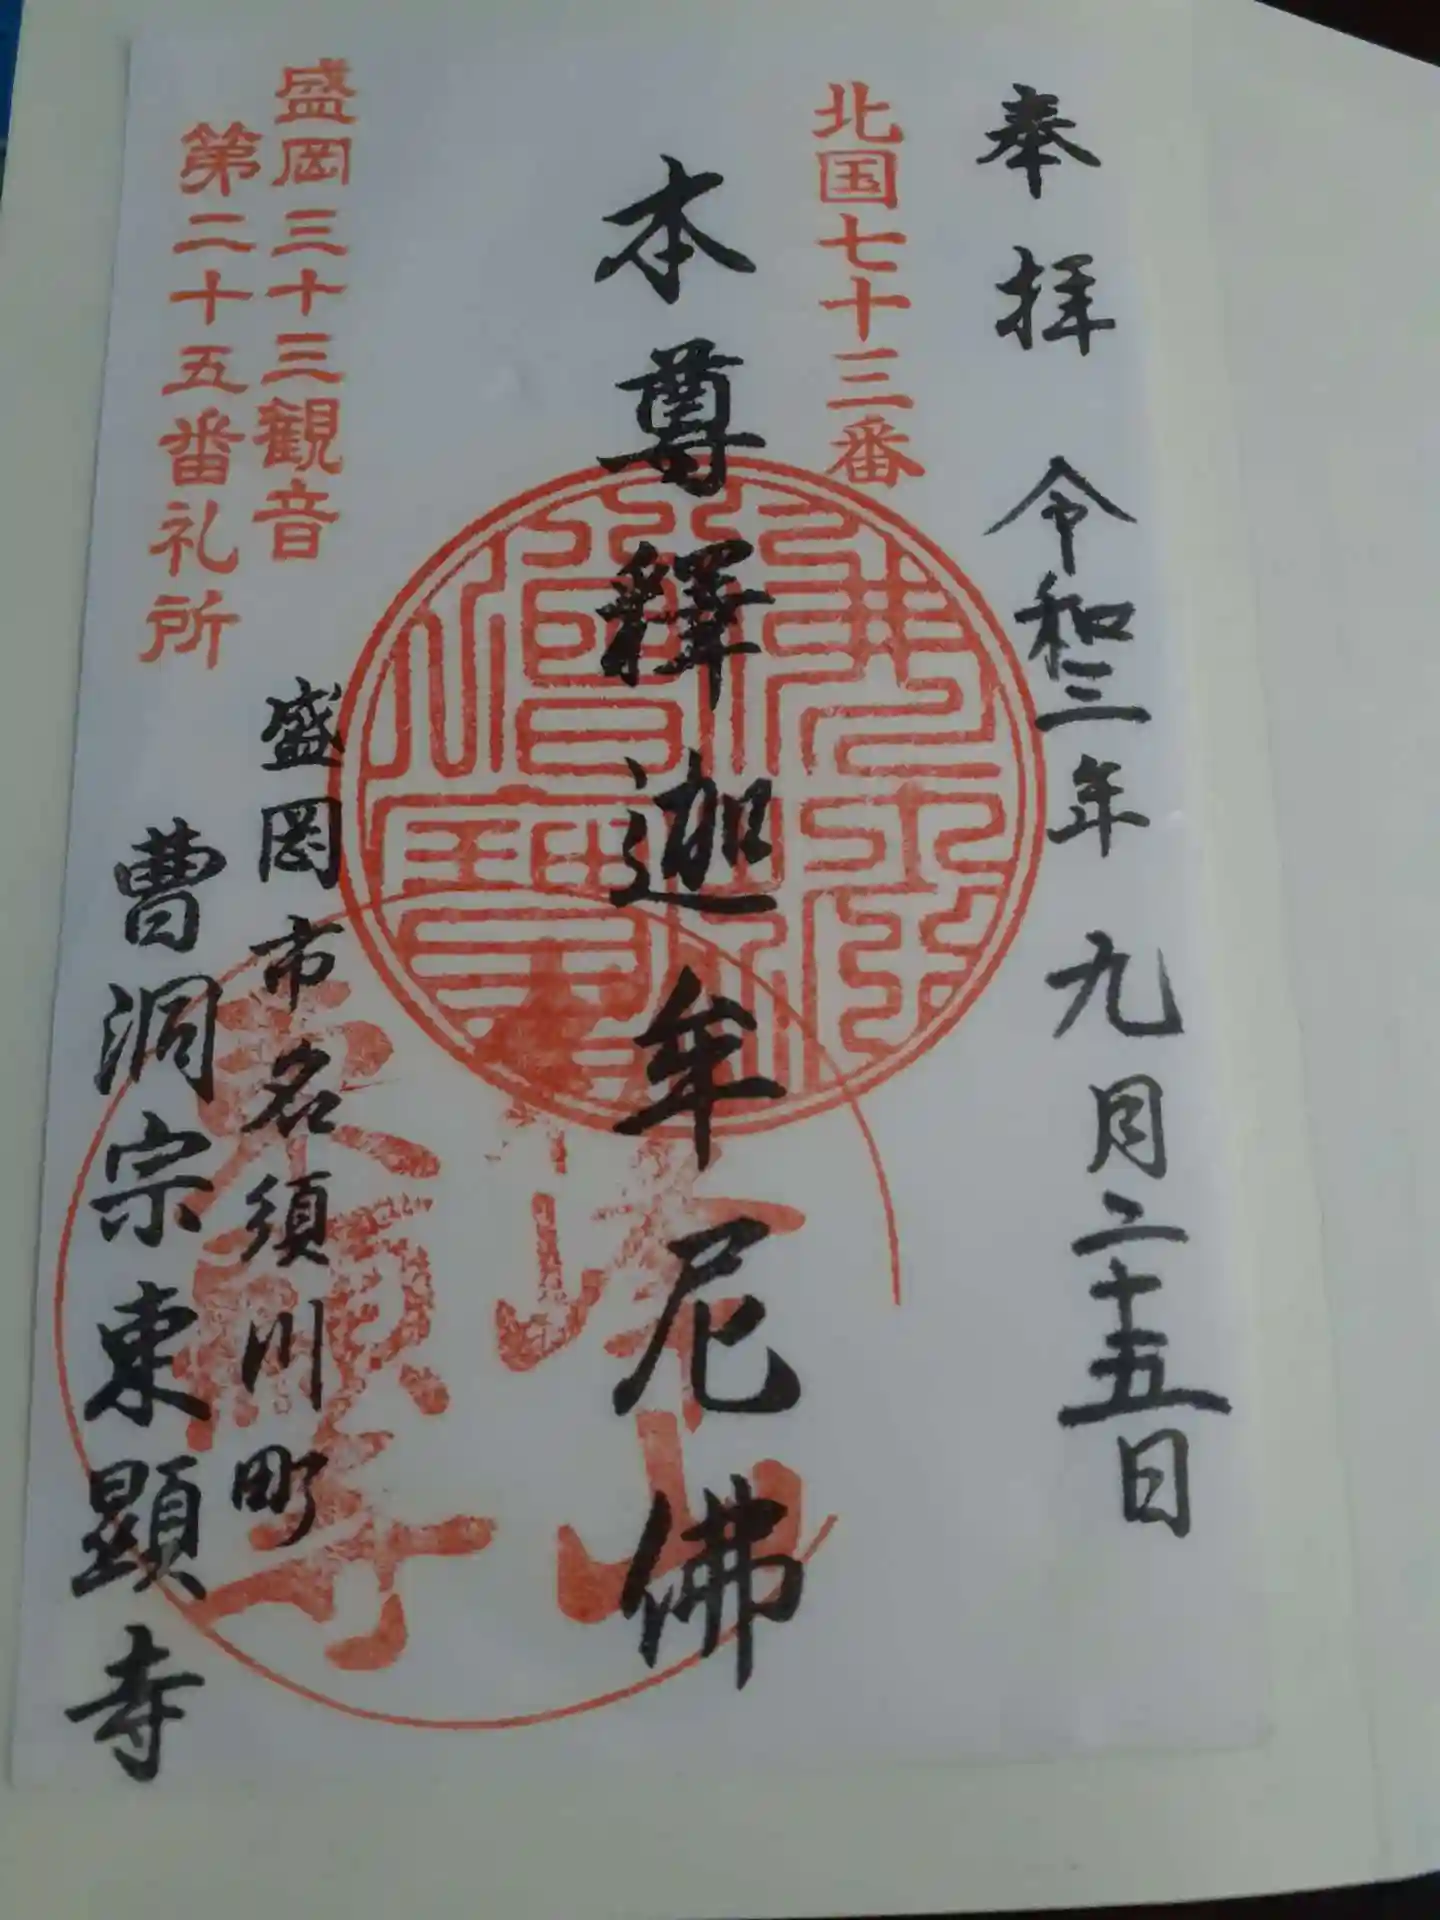 奉拝 令和三年九月二十五日
北国七十三番
本尊釋迦牟尼佛
佛法僧寶
盛岡三十三観音
第二十五番礼所
盛岡市名須川町
曹洞宗東顕寺
法山
東顕寺